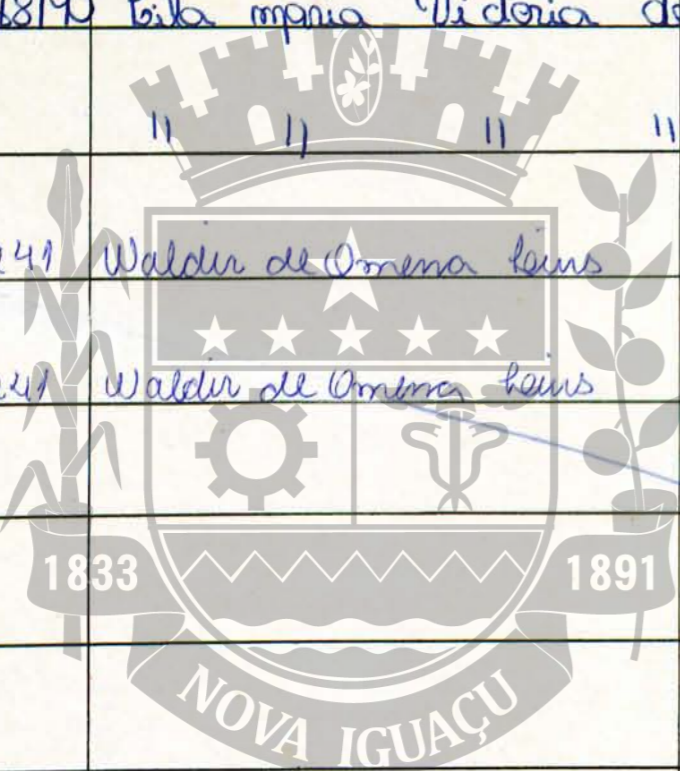 68/90 Eila maria Victoria do
" " " "
241 Waldir de Omena Lins
241 Waldir de Omena Lins
1833 1891
NOVA IGUAÇU